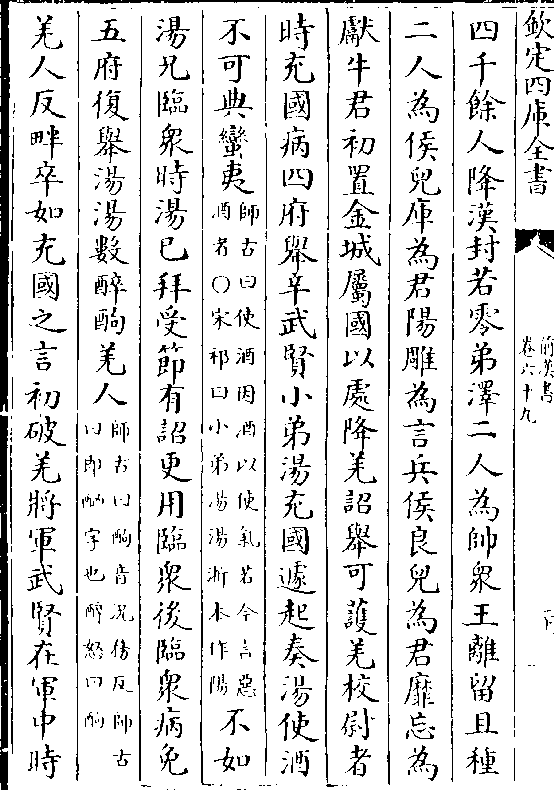 欽定四庫全書
前漢書
卷六十九
四千餘人降漢封若零弟澤二人為帥衆王離留且種
二人為侯兒庫為君陽雕為言兵侯良兒為君靡忘為
獻牛君初置金城屬國以處降羌詔舉可護羌校尉者
時充國病四府舉辛武賢小弟湯充國遽起奏湯使酒
不可典蠻夷師古曰使酒因酒以使氣若今言惡酒者○宋祁曰小弟湯湯淅本作陽不如
湯兄臨衆時湯已拜受節有詔更用臨衆後臨衆病免
五府復舉湯湯數醉酗羌人師古曰酗音况務反師古曰即酗字也醉怒曰酗
羌人反畔卒如充國之言初破羌將軍武賢在軍中時